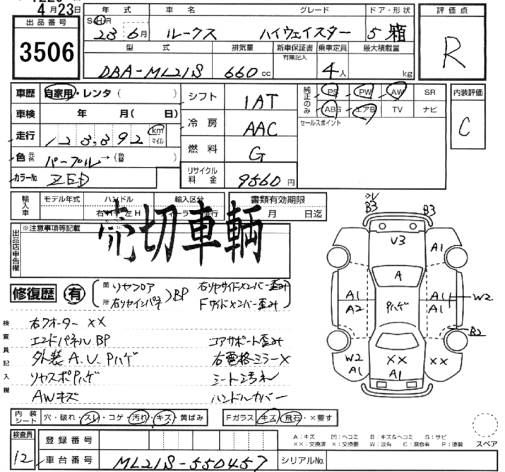 4月23日
出品番号
3506
年式 車名 グレード ドア・形状
S・H 23年6月 ルークス ハイウェイスター 5 箱
型式 排気量 新車保証書 有無記入 乗車定員 最大積載量
DBA-ML21S 660cc 4人 kg
評価点
R
車歴 自家用・レンタ( )
車検 年 月( 日)
走行 km マイル
色 パープル→( )
カラーNo ZED
シフト 1AT
冷房 AAC
燃料 G
リサイクル料金 9560円
純正のみ PS PW AW SR
ABS エアB TV ナビ
セールスポイント
内装評価
C
輸入車 モデル年式 ハンドル 輸入区分
右H 左H ディーラー
書類有効期限
月 日迄
※注意事項等記載
出品店申告欄
売切車輌
修復歴 有
リヤフロア
右リヤインパネ
BP
右リヤサイドメンバー歪み
Fサイドメンバー歪み
検査員記入欄
右クオーター XX
エンドパネルBP
コアサポート歪み
外装A.U.Pハゲ
右電格ミラーX
リヤスポPハゲ
シート コゲ
AWキズ
ハンドルカバー
B3 B3
V3
A1 A1
A
A1 A2
Pハゲ
A1 A1
W2
B2
W2 A1
XX A1
XX A1
内装シート 穴・破れ・スレ・コゲ・汚れ・キズ・黄ばみ
Fガラス キズ・飛石・X要す
検査員
12
登録番号
車台番号 ML21S-550457
シリアルNo.
A:キズ U:凹ヘコミ B:キズ&ヘコミ G:サビ
XX:交換済 X:要交換 W:波有 C:腐食有 P:塗装
スペア